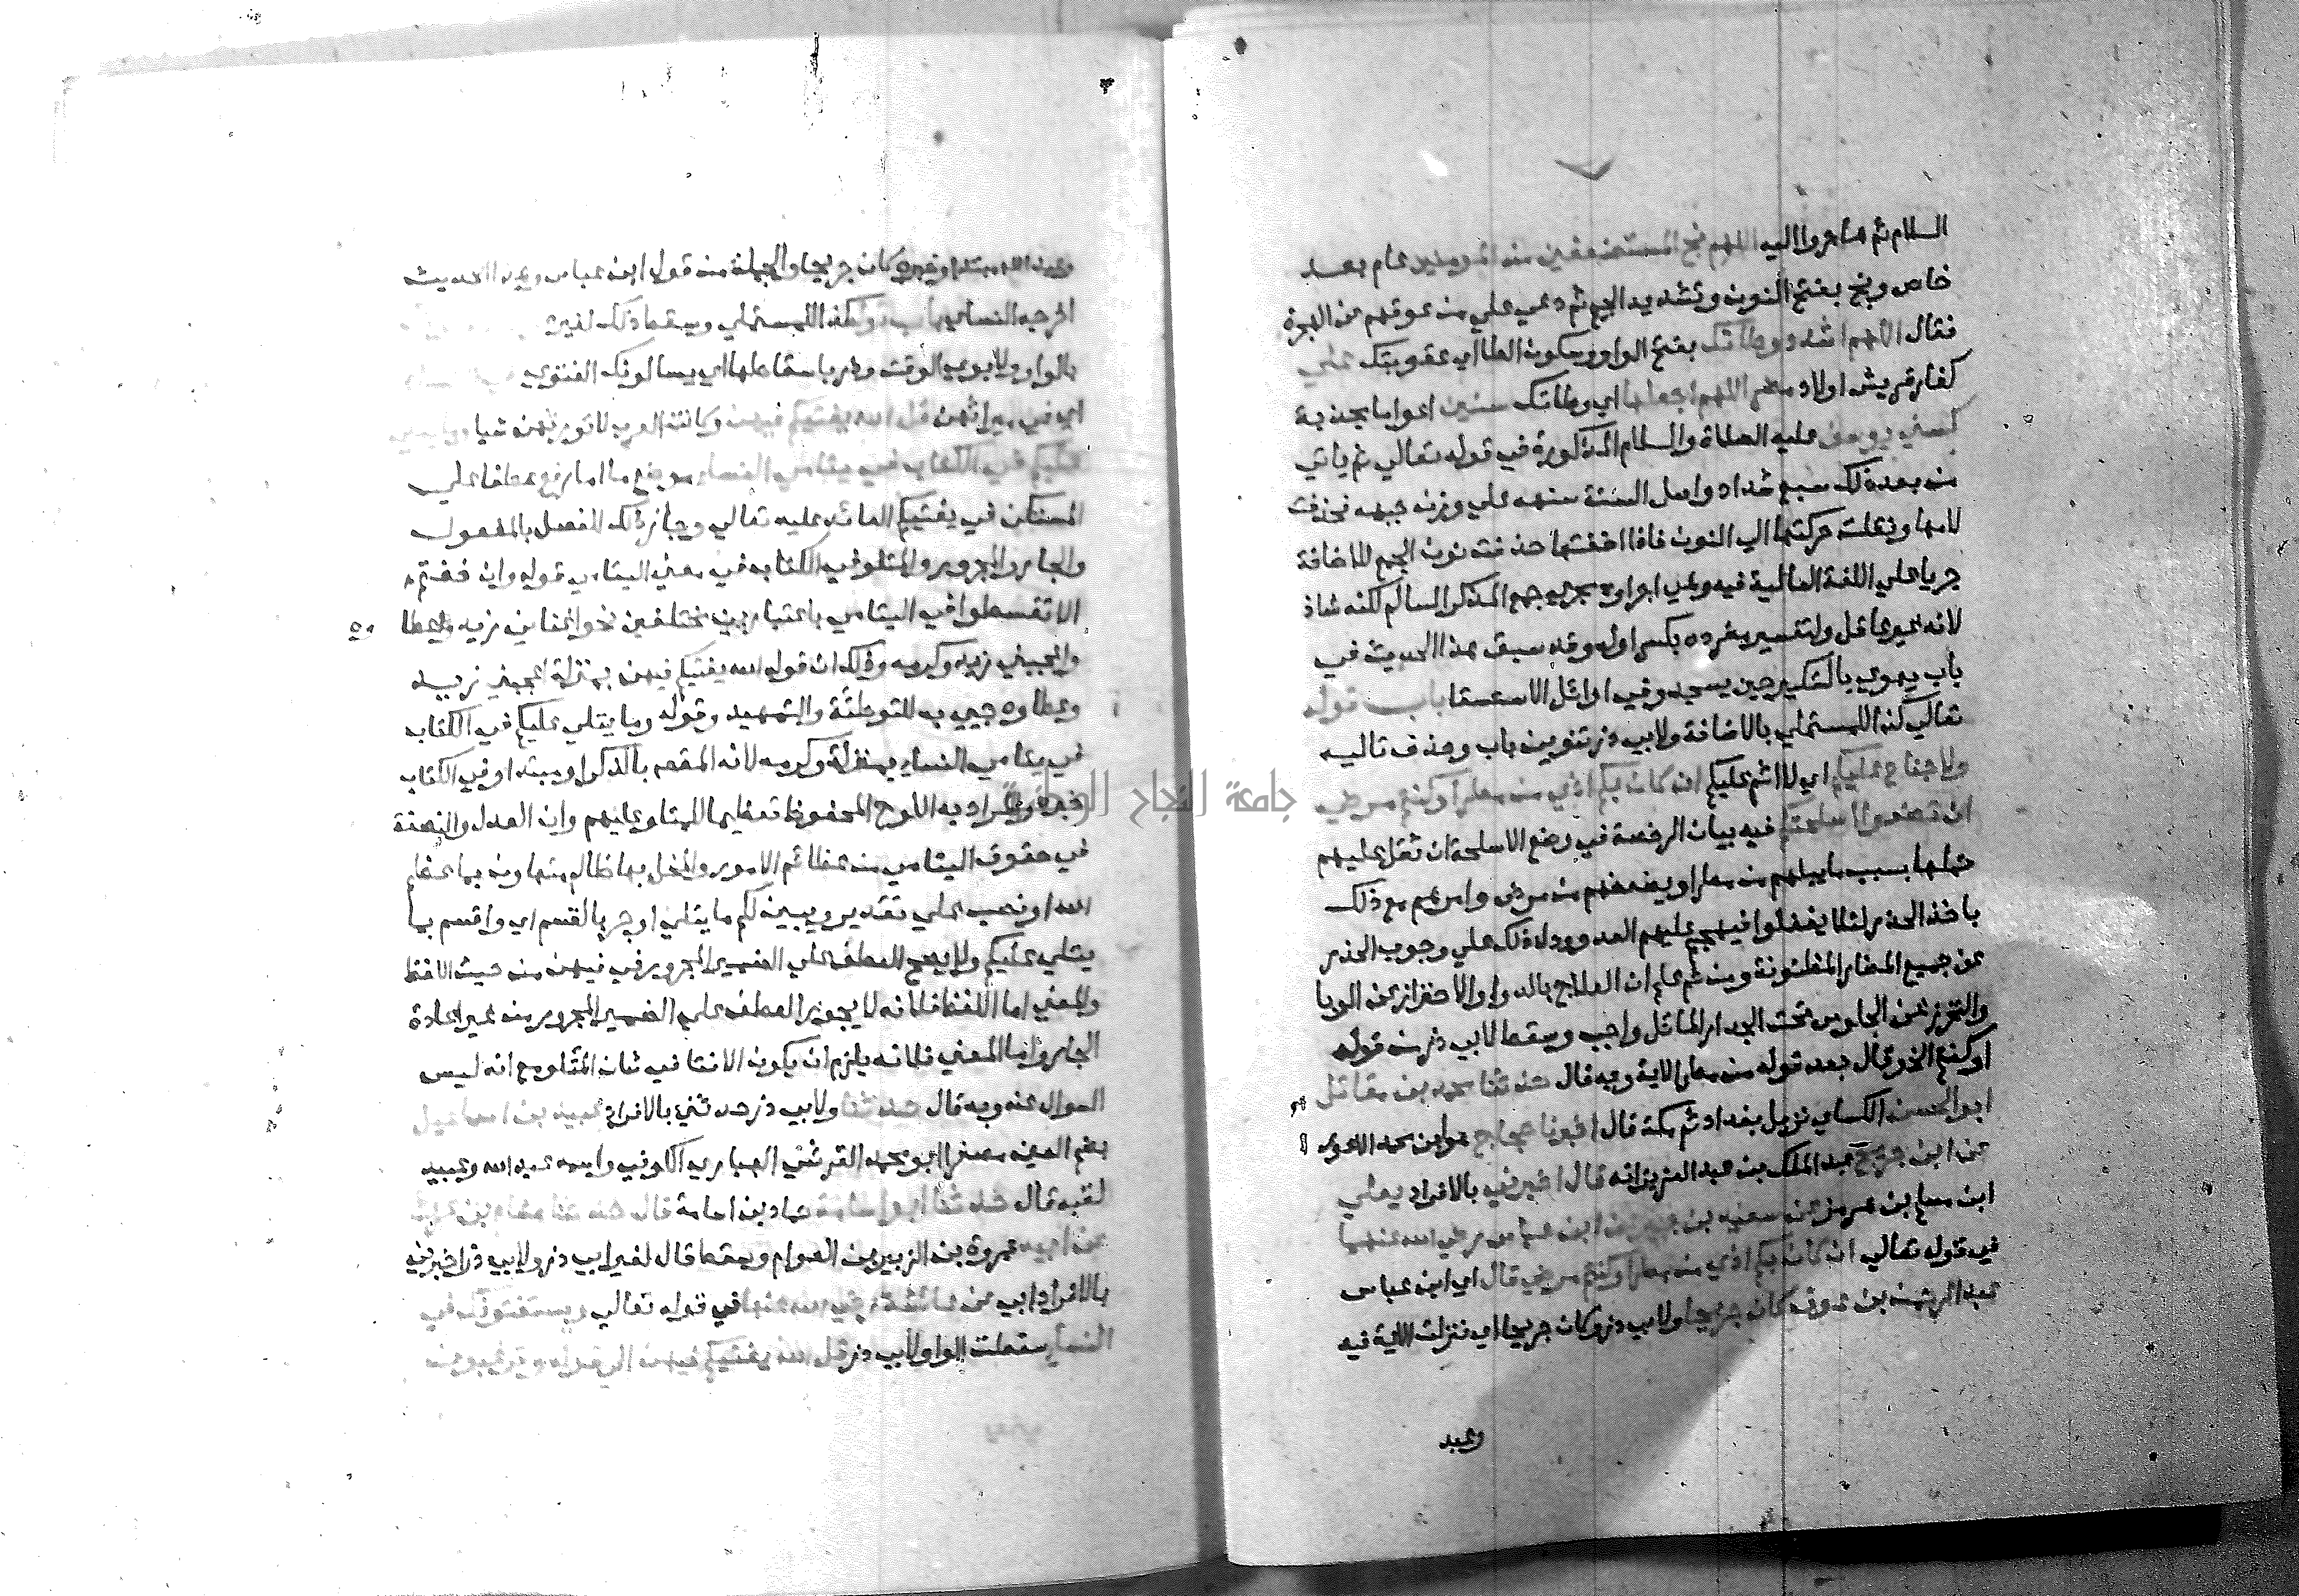 السلام ثم هاجروا اليه اللهم نج المستضعفين من المومنين عام بعد
خاص ونج بفتح النون وتشديد الجيم ثم دعي علي من عوقهم عن الهجرة
فقال اللهم اشدد وطاتك بفتح الواو وسكون الطا اي عقوبتك علي
كفار قريش اولاد مضر اللهم اجعلها اي وطاتك سنين اعواما مجدبة
كسني يوسف عليه الصلاة والسلام المذكورة في قوله تعالي ثم ياتي
من بعد ذلك سبع شداد واصل السنة سنهه علي وزن جبهه فحذفت
لامها ونقلت حركتها الي النون فاذا اضفتها حذفت نون الجمع للاضافة
جريا علي اللغة العالية فيه وهي اجراوه مجري جمع المذكر السالم لكنه شاذ
لانه غير عاقل ولتغيير مفرده بكسر اوله وقد سبق هذا الحديث في
باب يهوي بالتكبير حين يسجد وفي اوائل الاستسقا باب قوله
تعالي كذا للمستملي بالاضافة ولابي ذر تنوين باب وحذف تاليه
ولا جناح عليكم اي لا اثم عليكم ان كان بكم اذي من مطر او كنتم مرضي
ان تضعوا اسلحتكم فيه بيان الرخصة في وضع الاسلحة ان ثقل عليهم
حملها بسبب ما يبلهم من مطر او يضعفهم من مرض وامرهم مع ذلك
باخذ الحذر لئلا يغفلوا فيهجم عليهم العدو ودل ذلك علي وجوب الحذر
عن جميع المضار المظنونة ومن ثم علم ان العلاج بالدوا والاحتراز عن الوبا
والتحرز عن الجلوس تحت الجدار المائل واجب وسقط لابي ذر من قوله
او كنتم الخ وقال بعد قوله من مطر الاية وبه قال حدثنا محمد بن مقاتل
ابو الحسن الكسائي نزيل بغداد ثم مكة قال اخبرنا حجاج هو ابن محمد الاعور
عن ابن جريج عبد الملك بن عبد العزيز انه قال اخبرني بالافراد يعلي
ابن مسلم بن هرمز عن سعيد بن جبير عن ابن عباس رضي الله عنهما
في قوله تعالي ان كان بكم اذي من مطر او كنتم مرضي قال اي ابن عباس
عبد الرحمن بن عوف كان جريحا ولابي ذر وكان جريحا اي فنزلت الاية فيه
وعبد
وعبد الله مبتدا وخبره كان جريحا والجملة من قول ابن عباس وهذا الحديث
اخرجه النسائي باب كذا للمستملي وسقط ذلك لغيره
بالواو ولابوي الوقت وذر باسقاطها اي يسالونك الفتوي
اي في ميراثهن قل الله يفتيكم فيهن وكانت العرب لا تورثهن شيا وما يتلي
عليكم في الكتاب في يتامي النساء موضع ما اما رفع عطفا علي
المستكن في يفتيكم العائد عليه تعالي وجاز ذلك للفصل بالمفعول
والجار والمجرور والمتلو في الكتاب في معني اليتامي قوله وان خفتم
الا تقسطوا في اليتامي باعتبارين مختلفين نحو اغناني زيد وعطاوه
واعجبني زيد وكرمه وذلك ان قوله الله يفتيكم فيهن بمنزلة اعجبني زيد
وعطاوه جيي به للتوطئة والتمهيد وقوله وما يتلي عليكم في الكتاب
في يتامي النساء بمنزلة وكرمه لانه المقصد بالذكر او مبتدا وفي الكتاب
خبره والمراد به اللوح المحفوظ تعظيما للمتلو عليهم وان العدل والنصفة
في حقوق اليتامي من عظائم الامور والمخل بها ظالم متهاون بما عظم
الله او نصب علي تقدير ويبين لكم ما يتلي او جر بالقسم اي واقسم بما
يتلي عليكم ولا يصح العطف علي الضمير المجرور في فيهن من حيث اللفظ
والمعني اما اللفظ فلانه لا يجوز العطف علي الضمير المجرور من غير اعادة
الجار واما المعني فلانه يلزم ان يكون الافتا في شان المتلو مع انه ليس
السوال عنه وبه قال حدثنا ولابي ذر حدثني بالافراد عبيد بن اسماعيل
بضم العين مصغرا ابو محمد القرشي الهباري الكوفي واسمه عبد الله وعبيد
لقبه قال حدثنا ابو اسامة حماد بن اسامة قال حدثنا هشام بن عروة
عن ابيه عروة بن الزبير بن العوام وسقط قال لغير ابي ذر ولابي ذر اخبرني
بالافراد ابي عن عائشة رضي الله عنها في قوله تعالي ويستفتونك في
النساء سقطت الواو لابي ذر قل الله يفتيكم فيهن الي قوله وترغبون